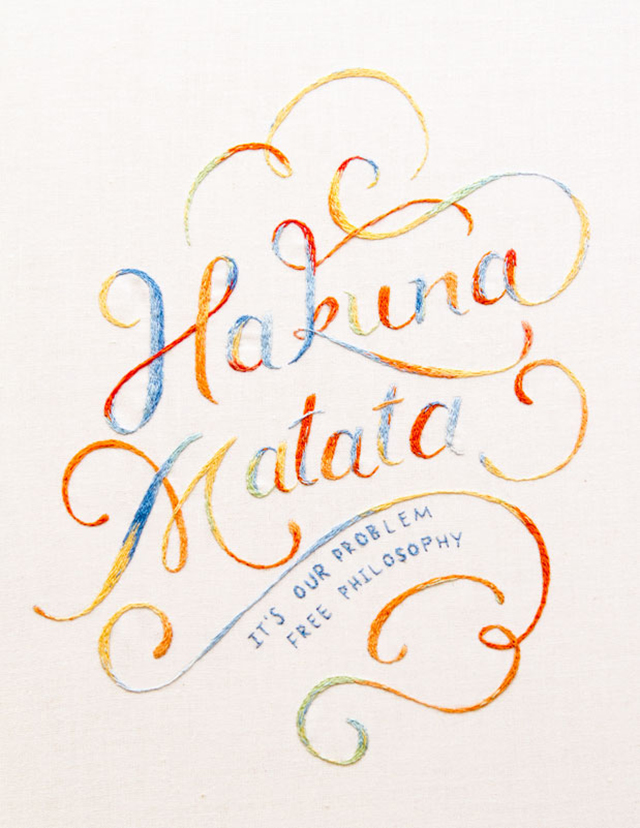 Hakuna
Matata
IT'S OUR PROBLEM
FREE PHILOSOPHY